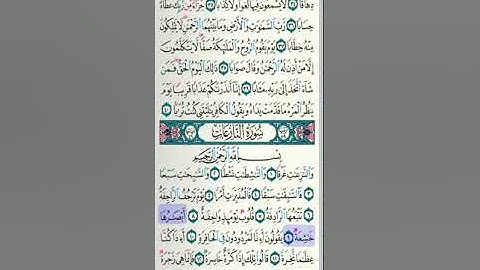 دِهَاقًا ٣٤ لَّا يَسْمَعُونَ فِيهَا لَغْوًا وَلَا كِذَّٰبًا ٣٥ جَزَآءً مِّن رَّبِّكَ عَطَآءً
حِسَابًا ٣٦ رَّبِّ ٱلسَّمَٰوَٰتِ وَٱلْأَرْضِ وَمَا بَيْنَهُمَا ٱلرَّحْمَٰنِ لَا يَمْلِكُونَ
مِنْهُ خِطَابًا ٣٧ يَوْمَ يَقُومُ ٱلرُّوحُ وَٱلْمَلَٰٓئِكَةُ صَفًّا لَّا يَتَكَلَّمُونَ
إِلَّا مَنْ أَذِنَ لَهُ ٱلرَّحْمَٰنُ وَقَالَ صَوَابًا ٣٨ ذَٰلِكَ ٱلْيَوْمُ ٱلْحَقُّ فَمَن
شَآءَ ٱتَّخَذَ إِلَىٰ رَبِّهِۦ مَـَٔابًا ٣٩ إِنَّآ أَنذَرْنَٰكُمْ عَذَابًا قَرِيبًا يَوْمَ
يَنظُرُ ٱلْمَرْءُ مَا قَدَّمَتْ يَدَاهُ وَيَقُولُ ٱلْكَافِرُ يَٰلَيْتَنِى كُنتُ تُرَٰبًۢا ٤٠
سُورَةُ النَّازِعَاتِ
بِسْمِ ٱللَّهِ ٱلرَّحْمَٰنِ ٱلرَّحِيمِ
وَٱلنَّٰزِعَٰتِ غَرْقًا ١ وَٱلنَّٰشِطَٰتِ نَشْطًا ٢ وَٱلسَّٰبِحَٰتِ سَبْحًا
٣ فَٱلسَّٰبِقَٰتِ سَبْقًا ٤ فَٱلْمُدَبِّرَٰتِ أَمْرًا ٥ يَوْمَ تَرْجُفُ ٱلرَّاجِفَةُ
٦ تَتْبَعُهَا ٱلرَّادِفَةُ ٧ قُلُوبٌ يَوْمَئِذٍ وَاجِفَةٌ ٨ أَبْصَٰرُهَا
خَٰشِعَةٌ ٩ يَقُولُونَ أَءِنَّا لَمَرْدُودُونَ فِى ٱلْحَافِرَةِ ١٠ أَءِذَا كُنَّا
عِظَٰمًا نَّخِرَةً ١١ قَالُوا۟ تِلْكَ إِذًا كَرَّةٌ خَاسِرَةٌ ١٢ فَإِنَّمَا هِىَ زَجْرَةٌ